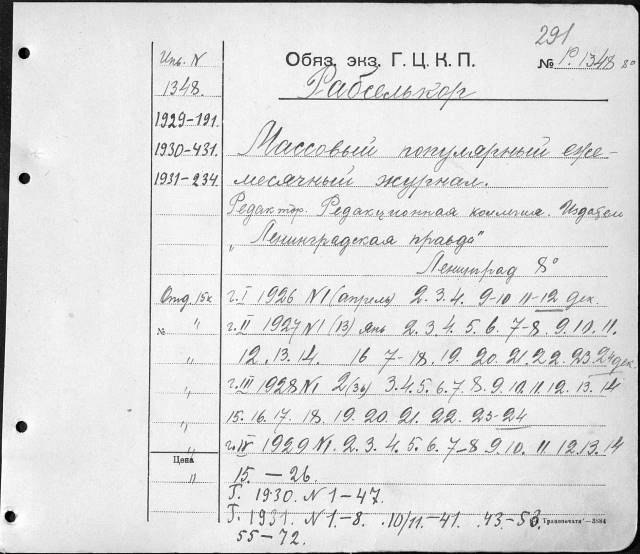 291
Инв. N
Обяз. экз. Г. Ц. К. П.
№ 1348 8°
1348.
Рабселькор
1929-191.
1930-431.
Массовый популярный еже-
1931-234
месячный журнал.
Редактор. Редакционная коллегия. Издатель
„Ленинградская правда"
Ленинград 8°
Отд. 15к
г. I 1926 N1 (апрель) 2. 3. 4. 9-10 11-12 дек.
№ "
г. II 1927 N1 (13) янв 2. 3. 4. 5. 6. 7-8 9. 10. 11.
"
12. 13. 14. 16 7-18. 19. 20. 21. 22. 23. 24 дек.
"
г. III 1928 N1 2(38) 3. 4. 5. 6. 7. 8. 9. 10. 11. 12. 13. 14
"
15. 16. 17. 18. 19. 20. 21. 22. 23-24
"
г. IV 1929 N1. 2. 3. 4. 5. 6. 7-8 9. 10. 11. 12. 13. 14
Цена
"
15. — 26.
Г. 1930. N 1-47.
Г. 1931. N 1.-8. 10/11.-41. 43.-53
55-72.
Транспечати — 3884